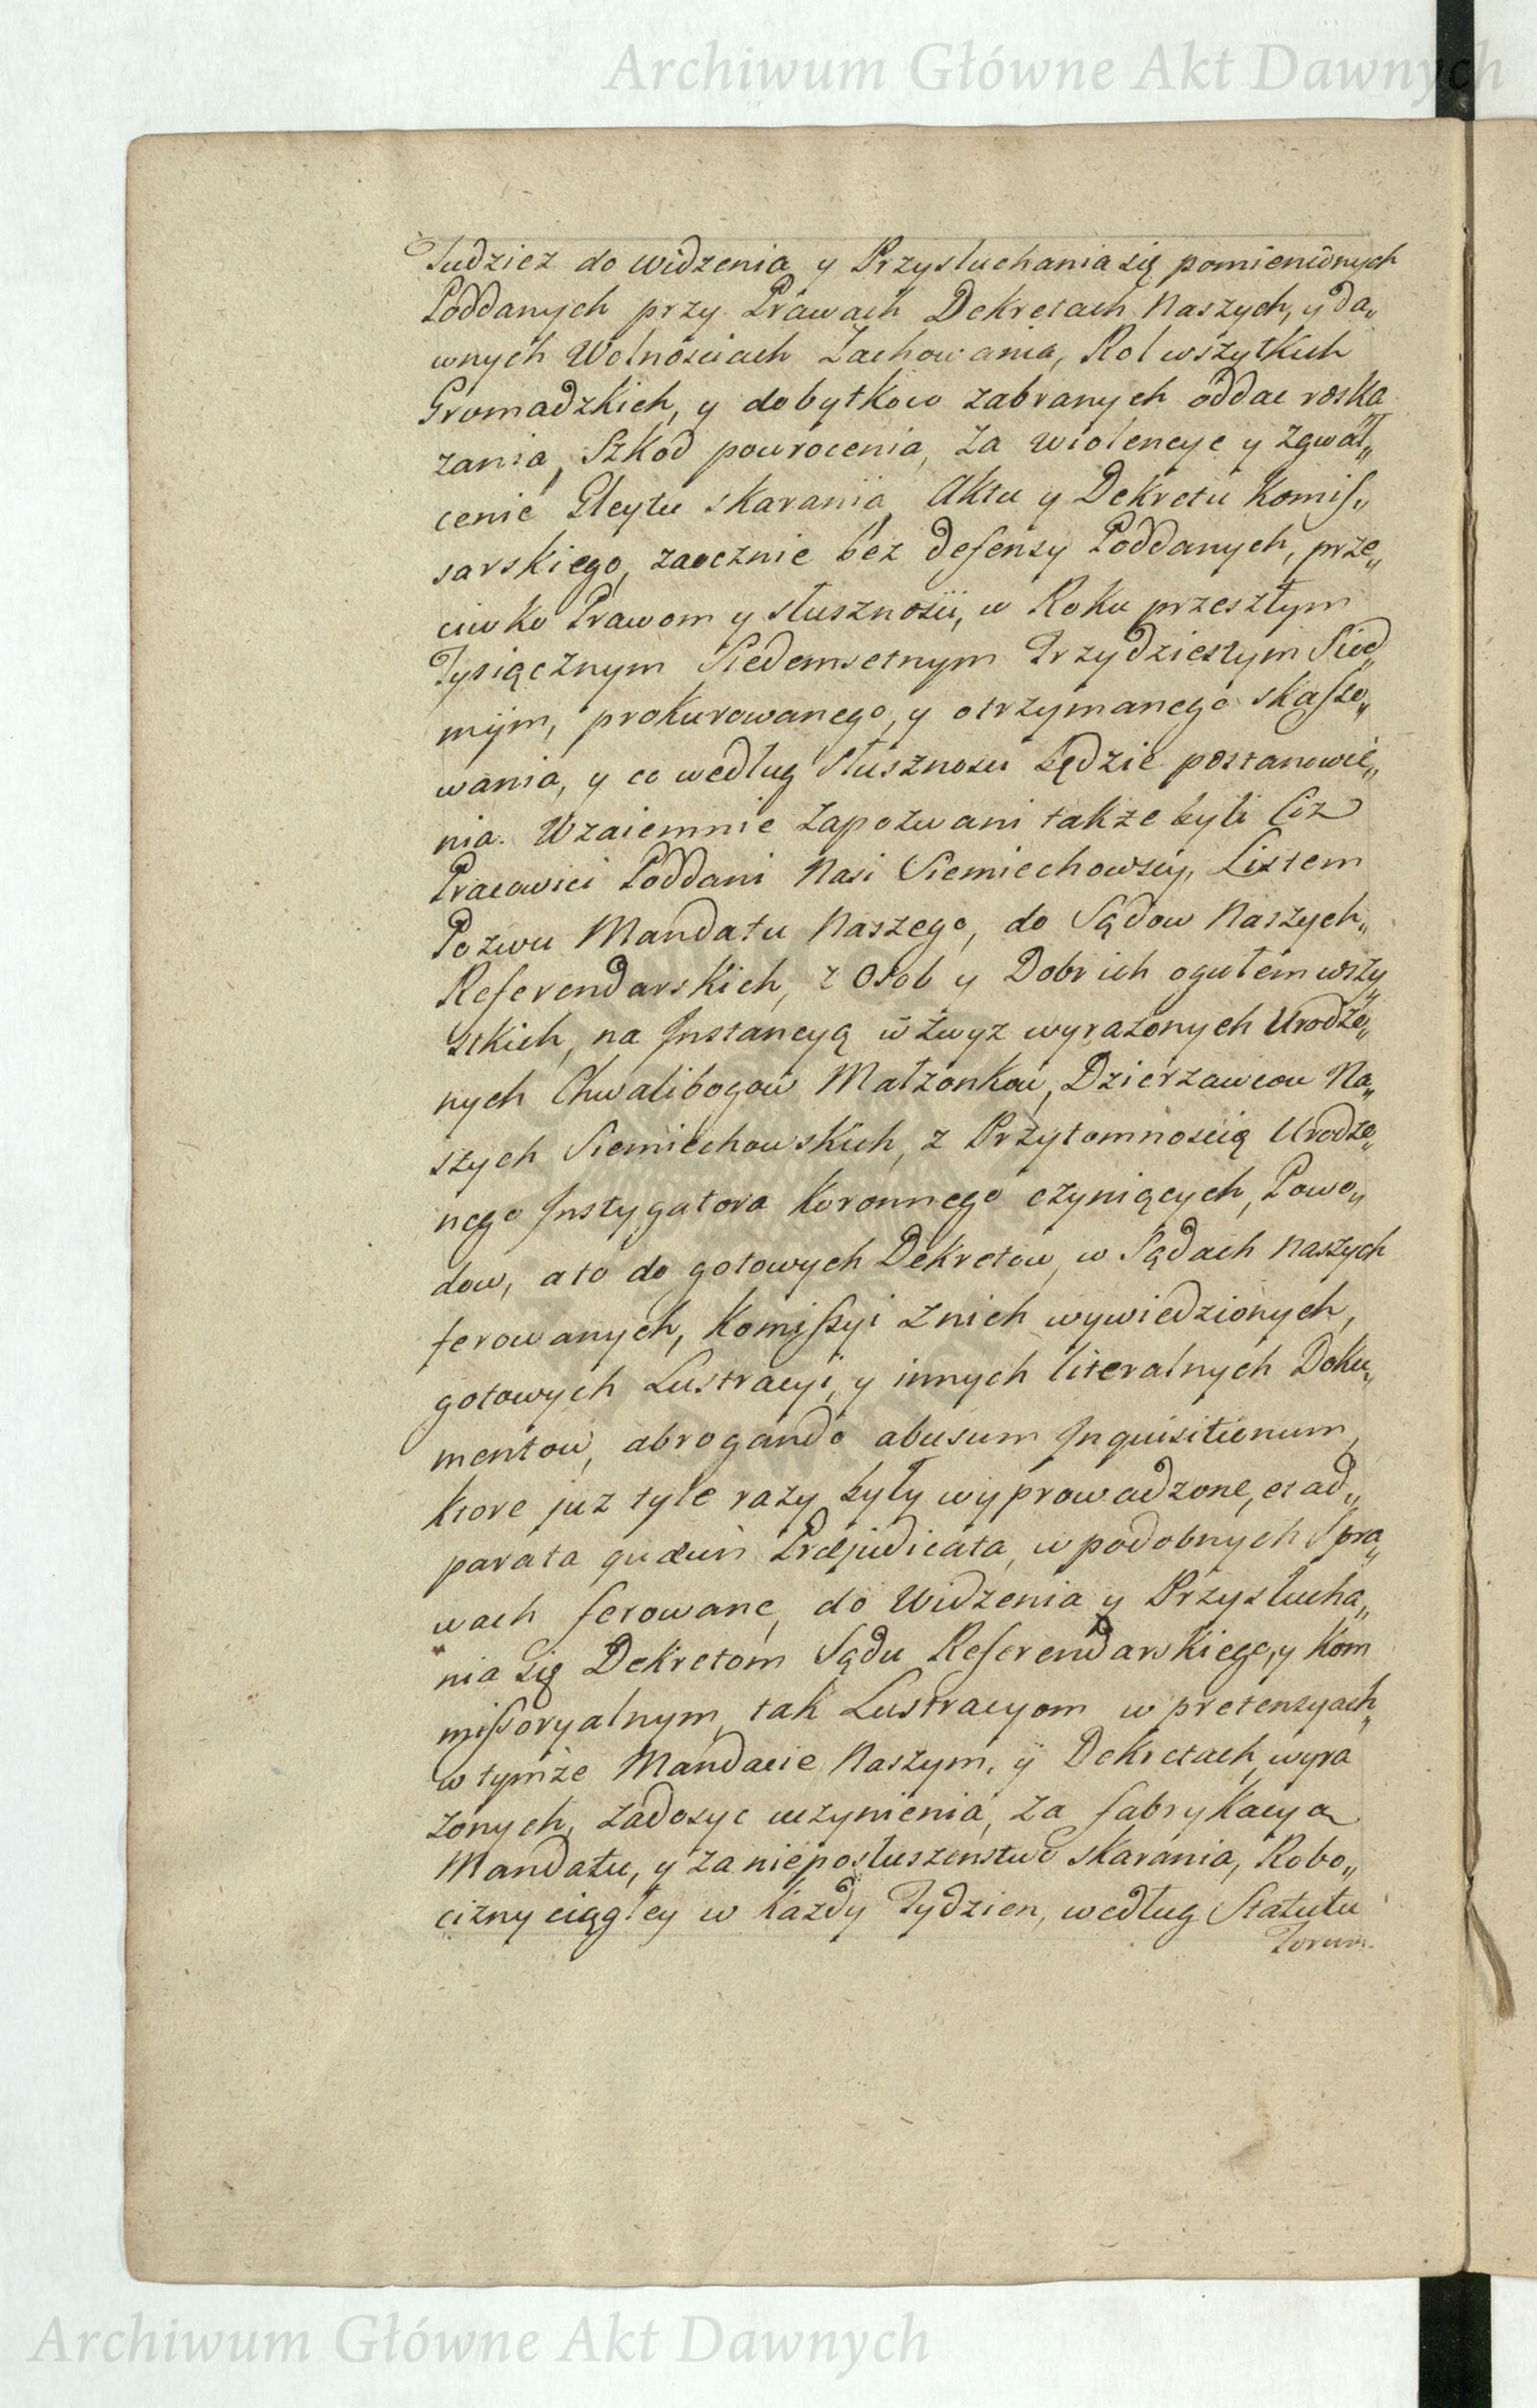 Archiwum Główne Akt Dawnych
Tudziez do widzenia y Przysluchania się pomienionych
Poddanych przy Prawach Dekretach Naszych, y da„
wnych Wolnosciach Zachowania, Rol wszytkich
Gromadzkich, y dobytkow zabranych oddac roska
zania, Szkod powrocenia, za wiolencye y zgwał„
cenie Gleytu skarania, Aktu y Dekretu Komis„
sarskiego, zaocznie bez defensy Poddanych, prze„
ciwko Prawom y słusznosci, w Roku przeszłym
Tysiącznym Siedemsetnym Trzydziestym Siod„
mym, prokurowanego, y otrzymanego skasso„
wania, y co według słusznosci będzie postanowie„
nia. Wzaiemnie zapozwani takze byli ciz
Pracowici Poddani Nasi Siemiechowscy, Listem
Pozwu Mandatu Naszego, do Sądow Naszych„
Referendarskich, z Osob y Dobr ich ogułem wszy„
stkich, na Instancyą wzwyz wyrazonych Urodzo„
nych Chwalibogow Małzonkow, Dzierzawcow Na„
szych Siemiechowskich, z Przytomnoscią Urodzo„
nego Instygatora Koronnego czyniących, Powo„
dow, a to do gotowych Dekretow, w Sądach Naszych
ferowanych, Komissyi z nich wywiedzionych,
gotowych Lustracyi, y innych literalnych Doku„
mentow, abrogando abusum Inquisitionum,
ktore juz tyle razy były wyprowadzone, et ad„
parata quaevis Praejudicata, w podobnych Spra„
wach ferowane, do Widzenia y Przysłucha„
nia się Dekretom Sądu Referendarskiego, y Kom
missoryalnym, tak Lustracyom w pretensyach„
w tymze Mandacie Naszym, y Dekretach wyra
zonych, zadosyc uczynienia, za fabrykacya
Mandatu, y za nieposłuszenstwo skarania, Robo„
cizny ciągłey w kazdy Tydzien, według Statutu
Torun.
Archiwum Główne Akt Dawnych